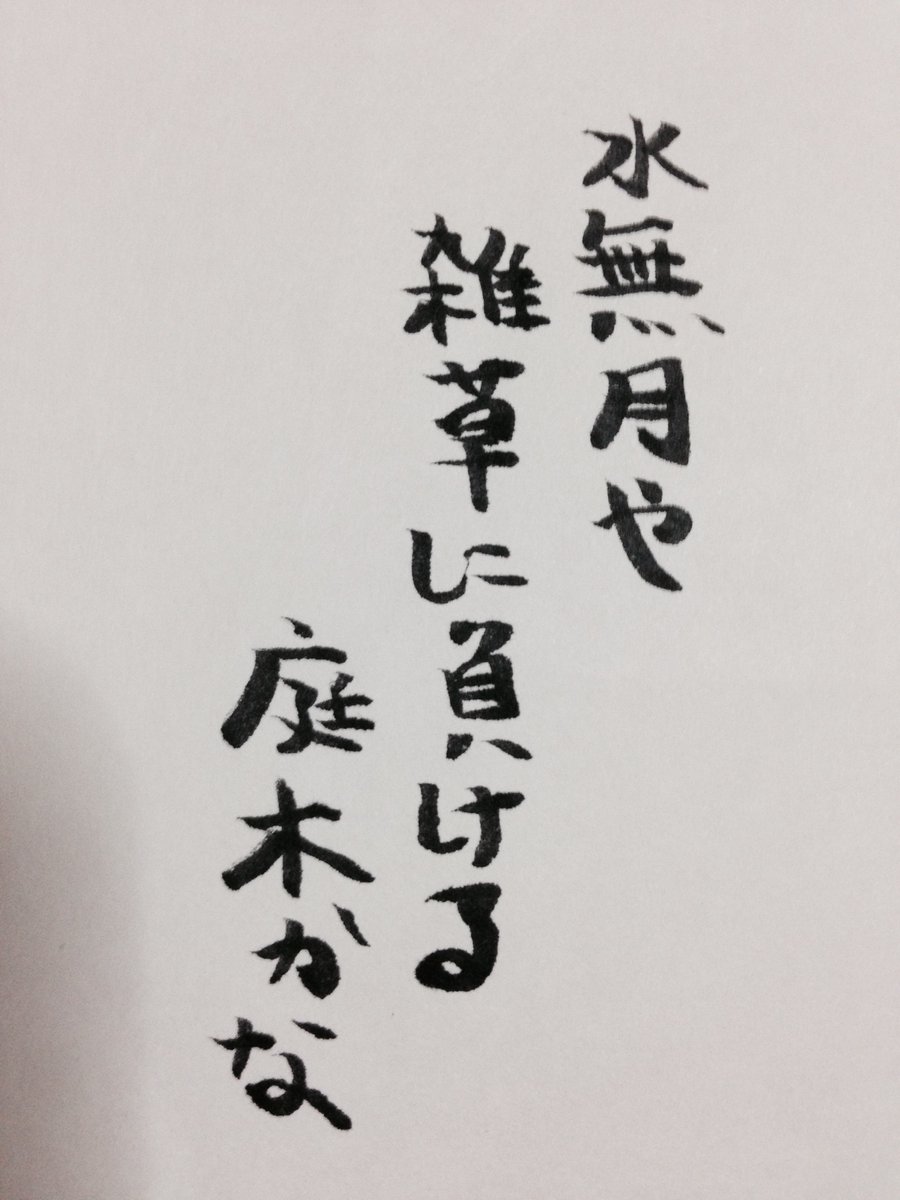 水無月や
雑草に負ける
庭木かな